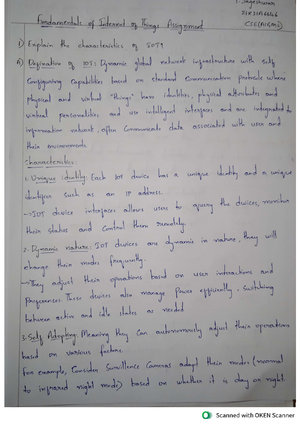 T. Jageswari
Fundamentals of Internet of Things Assignment
CSE(AI&ML)
1) Explain the characteristics of IOT?
A) Defination of IOT: Dynamic global network infrastructure with self
Configuring Capabilities based on standard Communication protocols where
physical and virtual "things" have identities, physical attributes and
virtual personalities and use intelligent interfaces and are integrated to
information network, often Communicate data associated with users and
their environments.
Characteristics:
1. Unique identity: Each IOT device has a unique identity and a unique
identifier such as an IP address.
→ IOT device interfaces allows users to query the devices, monitor
their status and Control them remotely.
2. Dynamic nature: IOT devices are dynamic in nature. They will
change their modes frequently.
→ They adjust their operations based on user interactions and
preferences. These devices also manage power efficiently, switching
between active and idle states as needed
3. Self Adapting: Meaning they can autonomously adjust their operations
based on various factors.
For example, Consider Surveillance Cameras adapt their modes (normal
to infrared night mode) based on whether it is day or night.
Scanned with OKEN Scanner